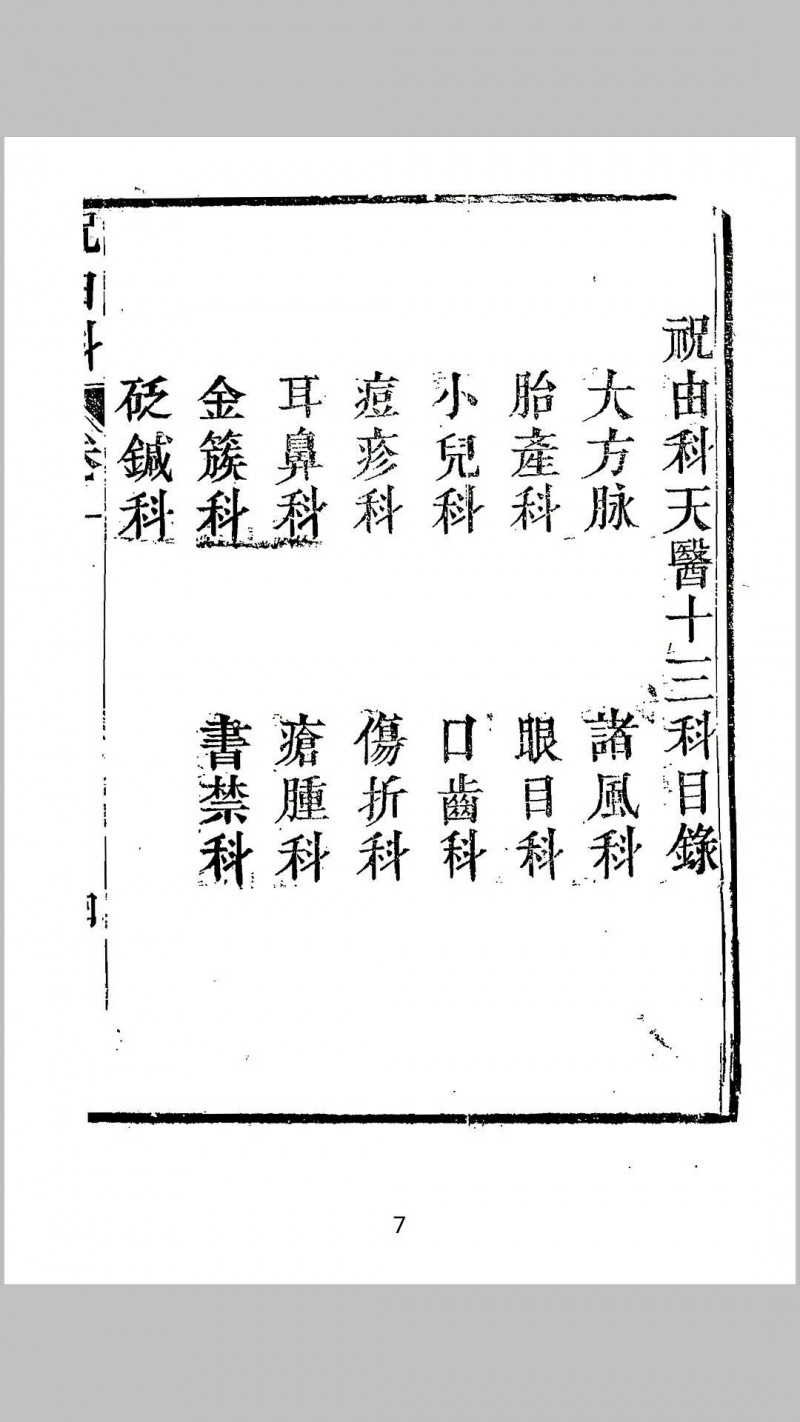 祝由科天醫十三科目錄
大方脉
諸風科
胎產科
眼目科
小兒科
口齒科
痘疹科
傷折科
耳鼻科
瘡腫科
金簇科
書禁科
砭鍼科
祝由科
卷一
四
7